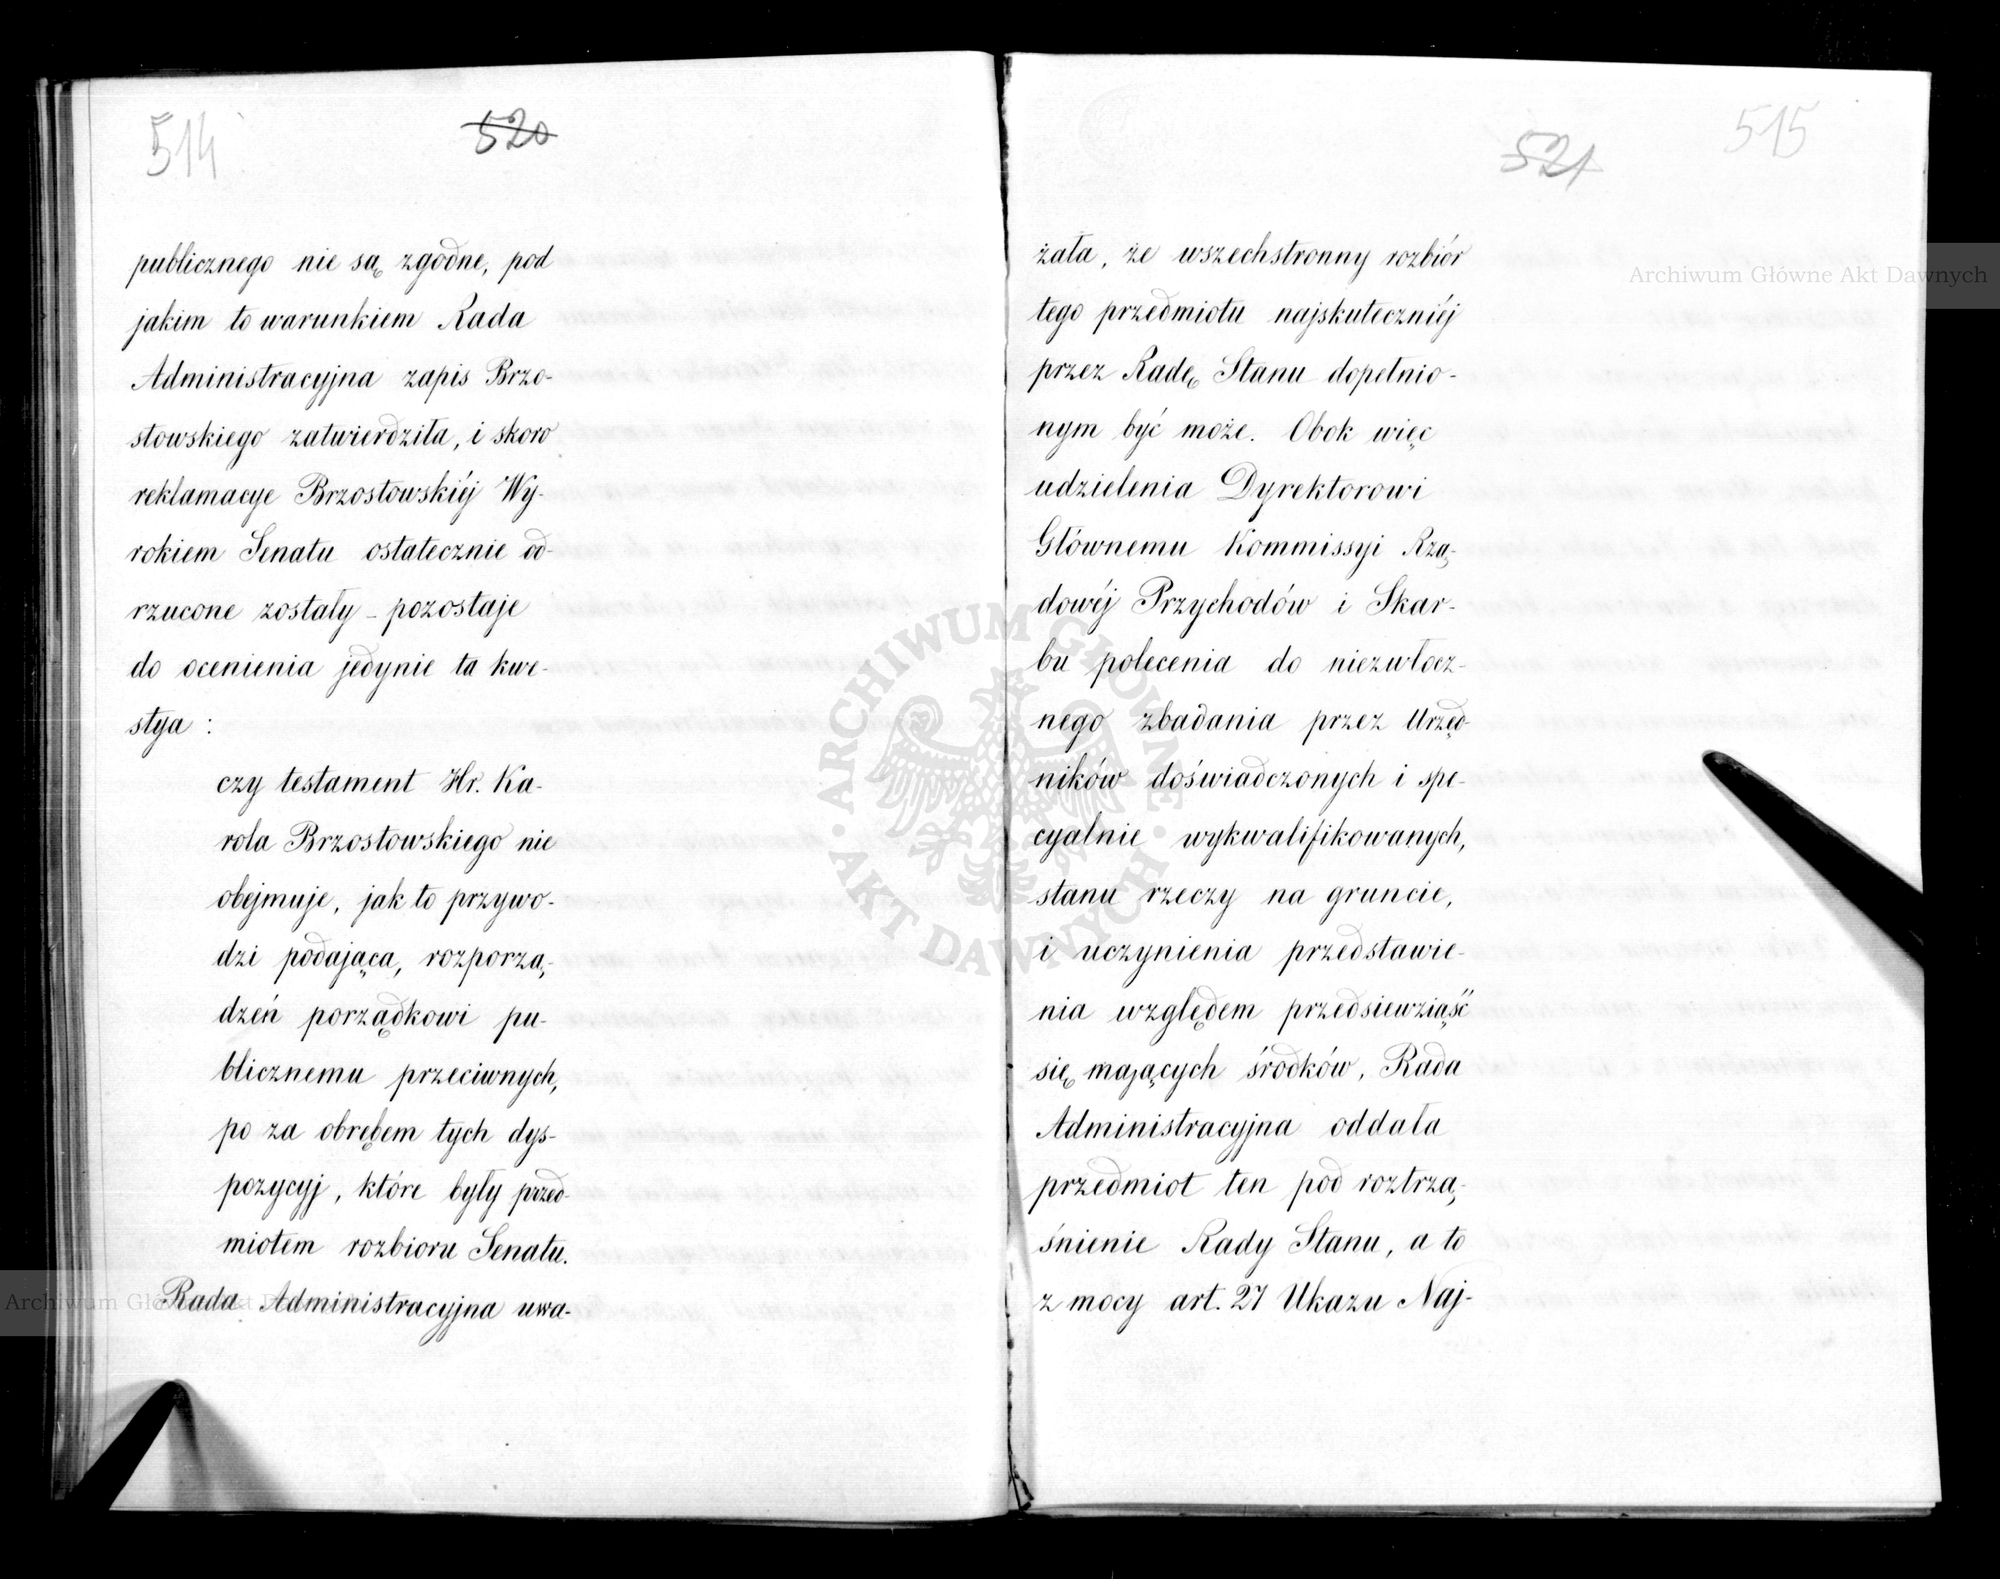 514
520
publicznego nie są zgodne, pod
jakim to warunkiem Rada
Administracyjna zapis Brzo-
stowskiego zatwierdziła, i skoro
reklamacye Brzostowskiéj Wy-
rokiem Senatu ostatecznie od-
rzucone zostały – pozostaje
do ocenienia jedynie ta kwe-
stya :
czy testament Hr. Ka-
rola Brzostowskiego nie
obejmuje, jak to przywo-
dzi podająca, rozporzą-
dzeń porządkowi pu-
blicznemu przeciwnych,
po za obrębem tych dys-
pozycyj, które były przed-
miotem rozbioru Senatu.
Rada Administracyjna uwa-
521
515
żała, że wszechstronny rozbiór
tego przedmiotu najskuteczniéj
przez Radę Stanu dopełnio-
nym być może. Obok więc
udzielenia Dyrektorowi
Głównemu Kommissyi Rzą-
dowéj Przychodów i Skar-
bu polecenia do niezwłocz-
nego zbadania przez Urzęd-
ników doświadczonych i spe-
cyalnie wykwalifikowanych,
stanu rzeczy na gruncie,
i uczynienia przedstawie-
nia względem przedsiewziąść
się mających środków, Rada
Administracyjna oddała
przedmiot ten pod roztrzą-
śnienie Rady Stanu, a to
z mocy art. 27 Ukazu Naj-
Archiwum Główne Akt Dawnych
Archiwum Główne Akt Dawnych
ARCHIWUM GŁÓWNE
AKT DAWNYCH